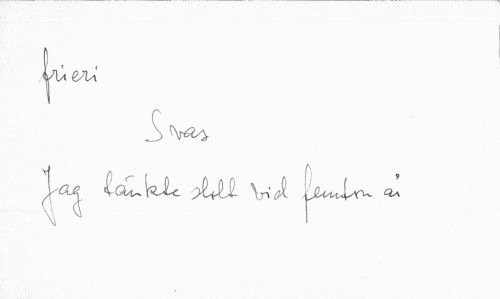 frieri
Svar
Jag tänkte stolt vid femton år